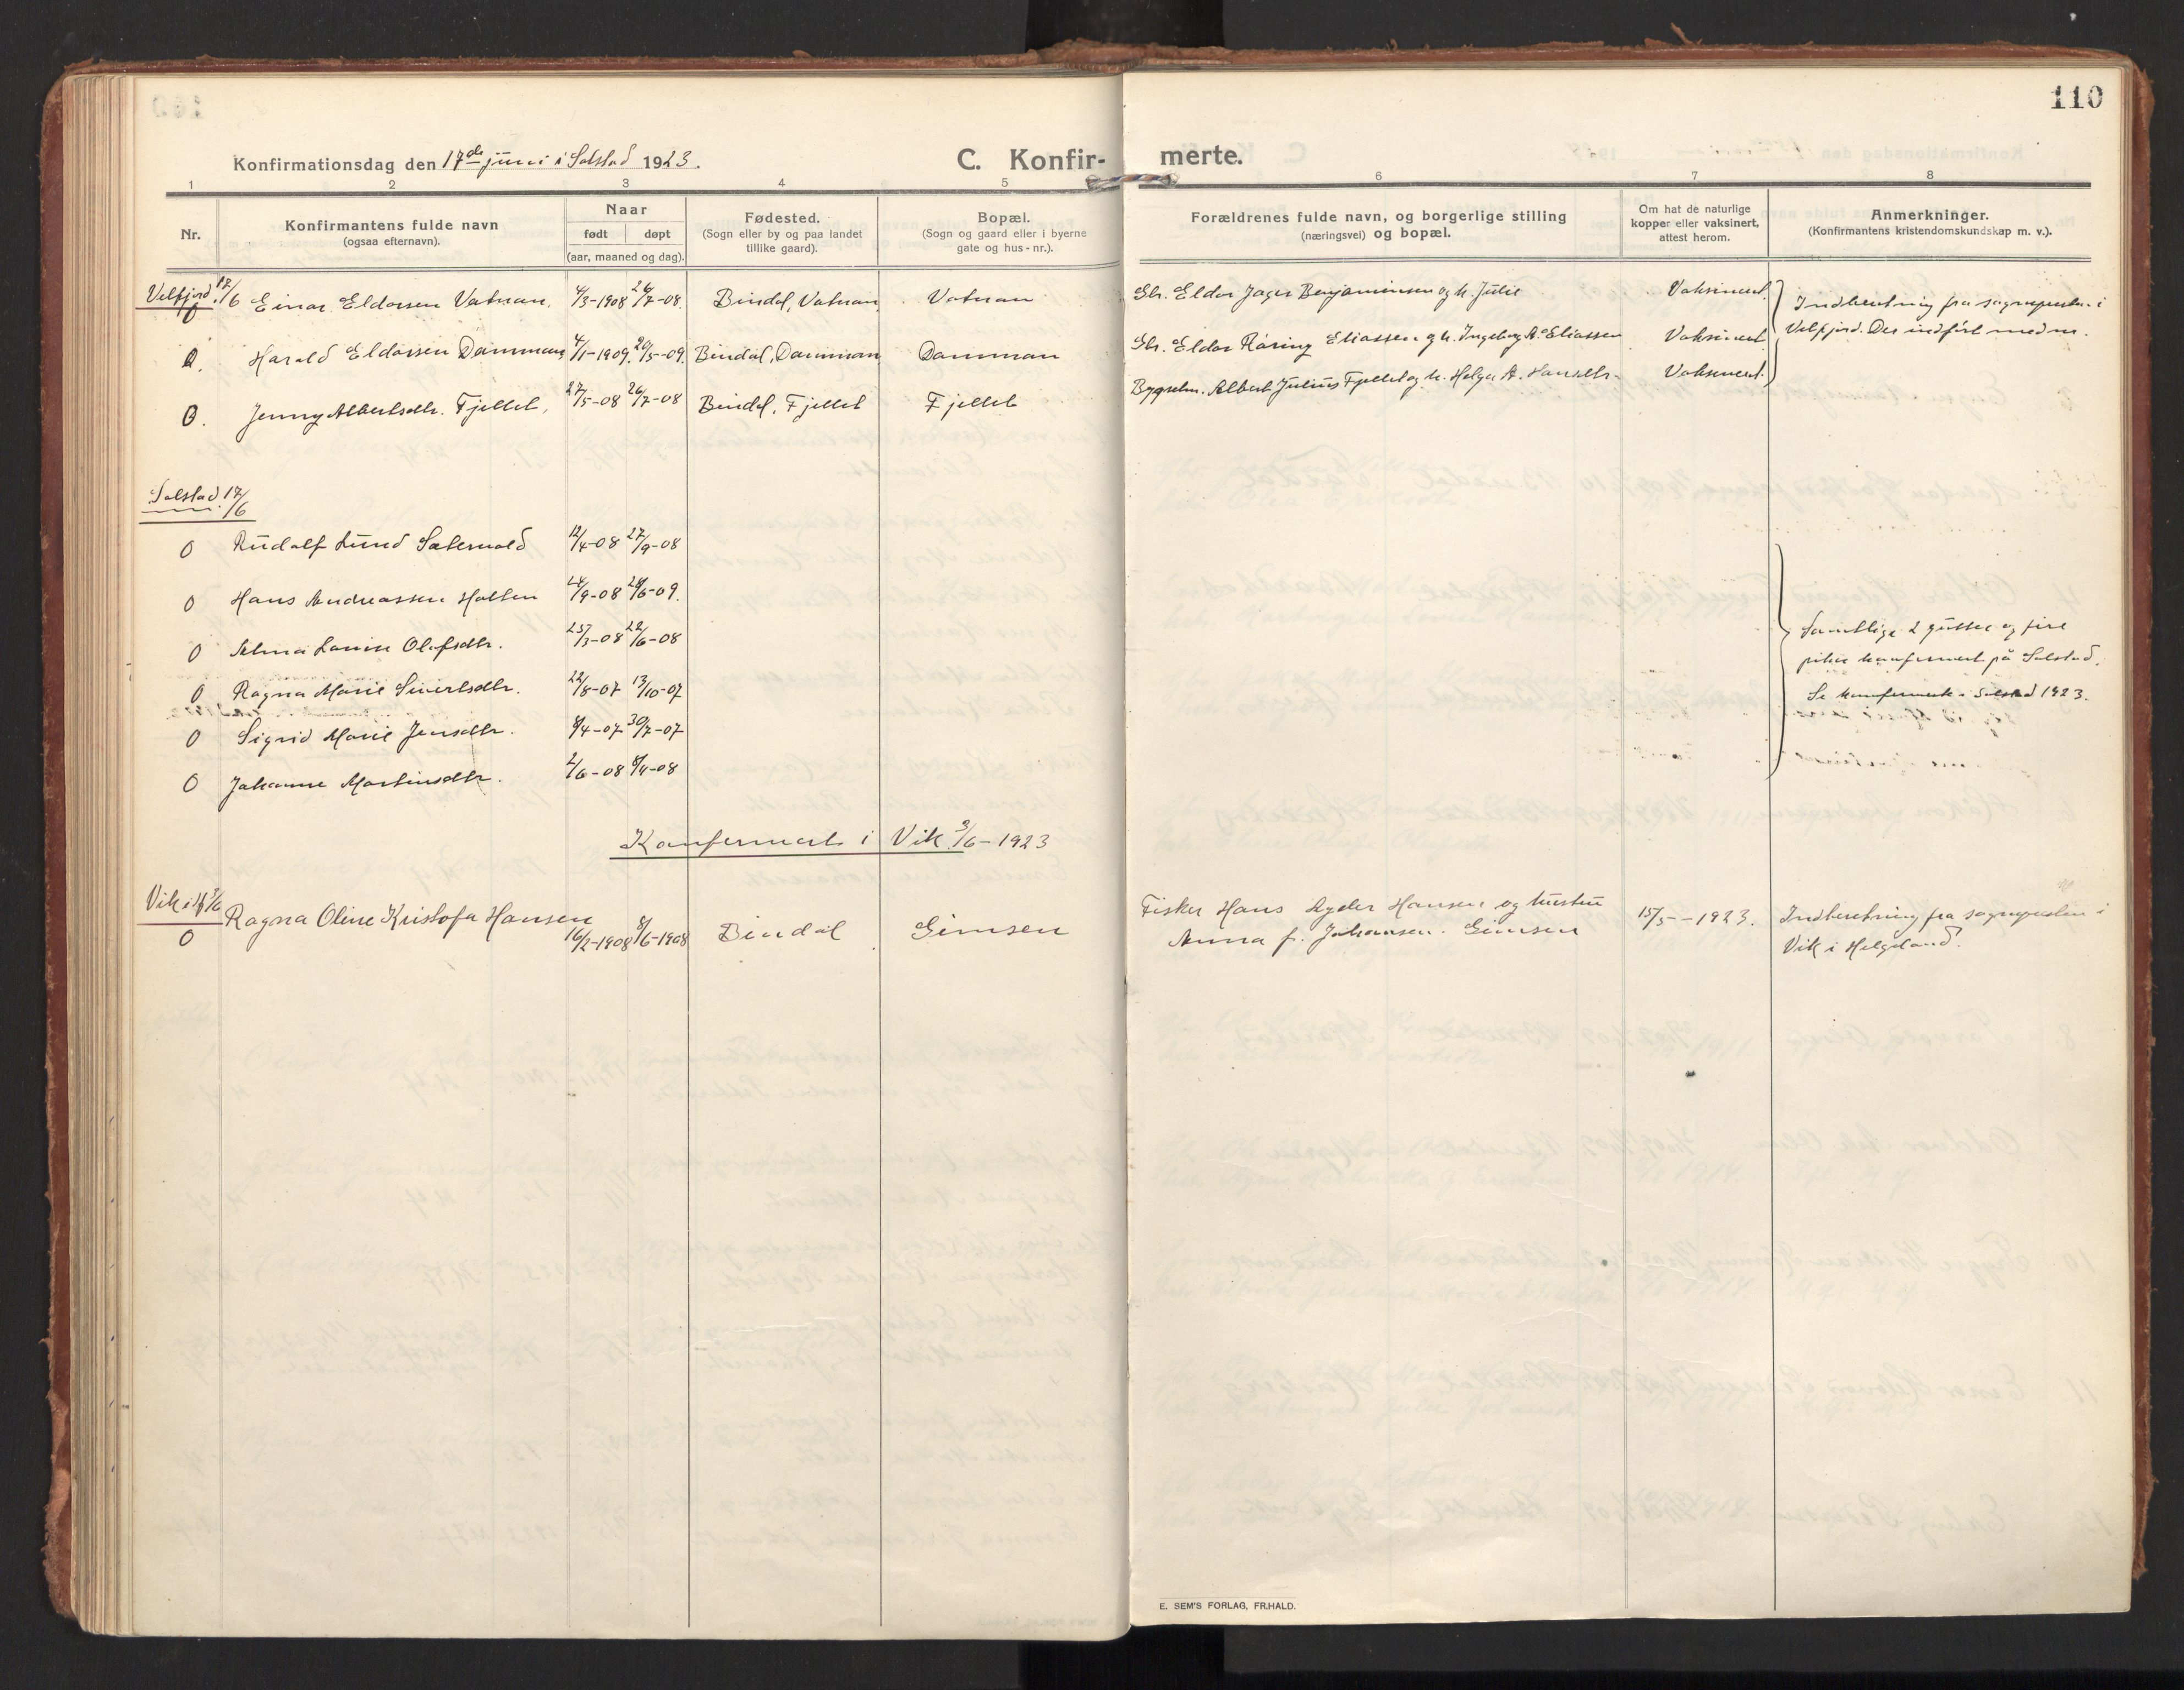 110
Konfirmationsdag den 17de juni i Solstad 1923.
C. Konfir-
merte.
1 2 3 4 5 6 7 8
Nr.
Konfirmantens fulde navn
(ogsaa efternavn).
Naar
født døpt
(aar, maaned og dag).
Fødested.
(Sogn eller by og paa landet
tillike gaard).
Bopæl.
(Sogn og gaard eller i byerne
gate og hus-nr.).
Forældrenes fulde navn, og borgerlige stilling
(næringsvei) og bopæl.
Om hat de naturlige
kopper eller vaksinert,
attest herom.
Anmerkninger.
(Konfirmantens kristendomskundskap m. v.).
Velfjord 17/6 Einar Eldorsen Vatnan. 4/3-1908 26/7-08. Bindal, Vatnan Vatnan Gbr. Eldor Jager Benjaminsen og h. Julie Vaksinert.
Indberetning fra sognepresten i
Velfjord. Der indført med nr.
0. Harald Eldorsen Damman 4/1-1909. 20/5-09. Bindal, Damman Damman Gbr. Eldor Röring Eliassen og h. Ingeborg A. Eliassen Vaksinert
0. Jenny Albertsdtr. Fjellet, 27/5-08 26/7-08 Bindal, Fjellet Fjellet Bygselm. Albert Julius Fjellet og h. Helga A. Hansdtr. Vaksinert.
Solstad 17/6
0 Rudolf Lund Sætervold 12/4-08 27/9-08
0 Hans Andreassen Holten 24/9-08 20/6-09.
0 Alma Lovise Olafsdtr. 25/3-08 22/6-08
0 Ragna Marie Sivertsdtr. 22/8-07 13/10-07
0 Sigrid Marie Jensdtr. 8/4-07 30/7-07
0 Johanne Martinsdtr. 2/6-08 8/4-08
Samtlige 2 gutter og fire
piker konfirmert på Solstad.
Se konfirmerte i Solstad 1923.
Konfirmert i Vik 3/6-1923
Vik i H 3/6
0 Ragna Oline Kristofa Hansen 16/2-1908 8/6-1908 Bindal Gimsen
Fisker Hans Ayder Hansen og hustru
Anna f. Johansen. Gimsen
15/5--1923.
Indberetning fra sognepresten i
Vik i Helgeland.
E. SEM'S FORLAG, FR.HALD.